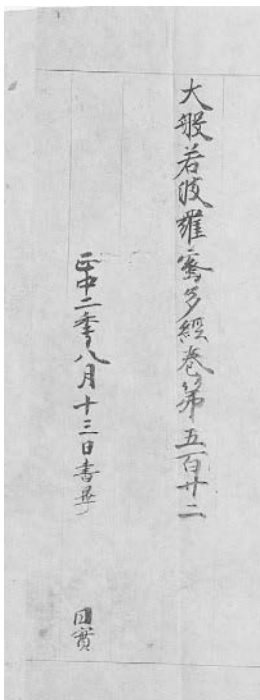 大般若波羅蜜多經卷第五百廿二
正中二季八月十三日書畢